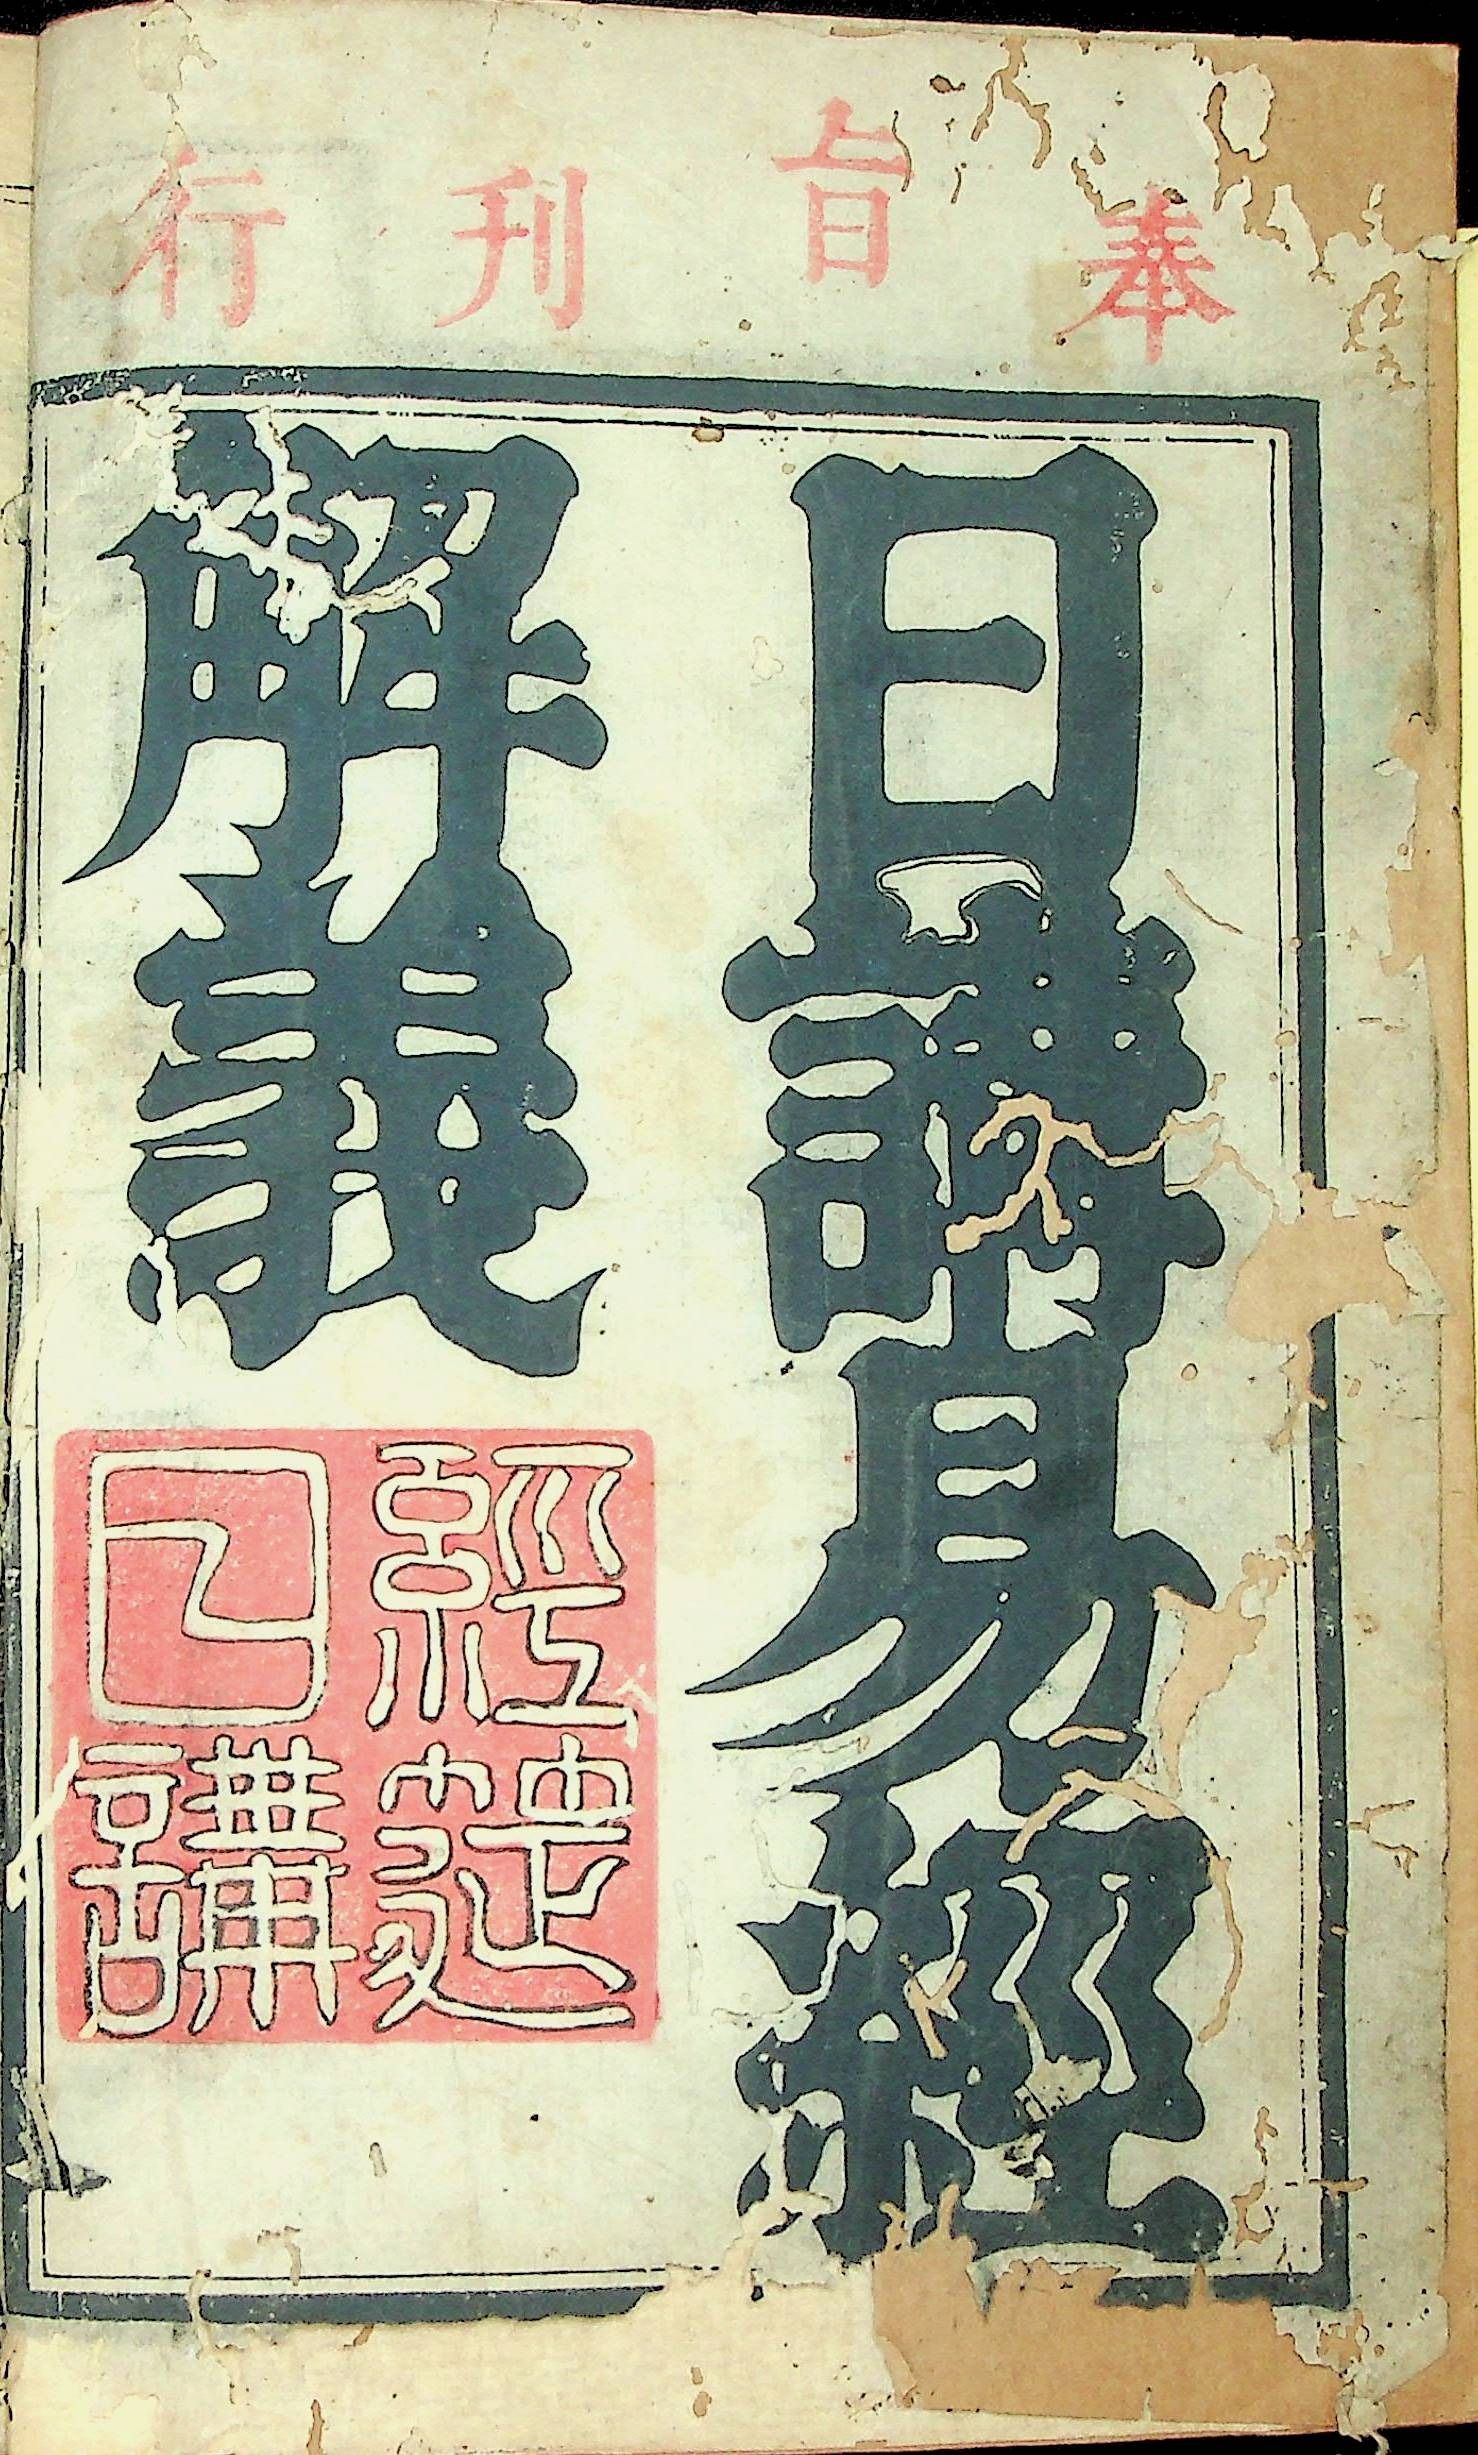 奉旨刊行
日講易經
解義
經筵
日講